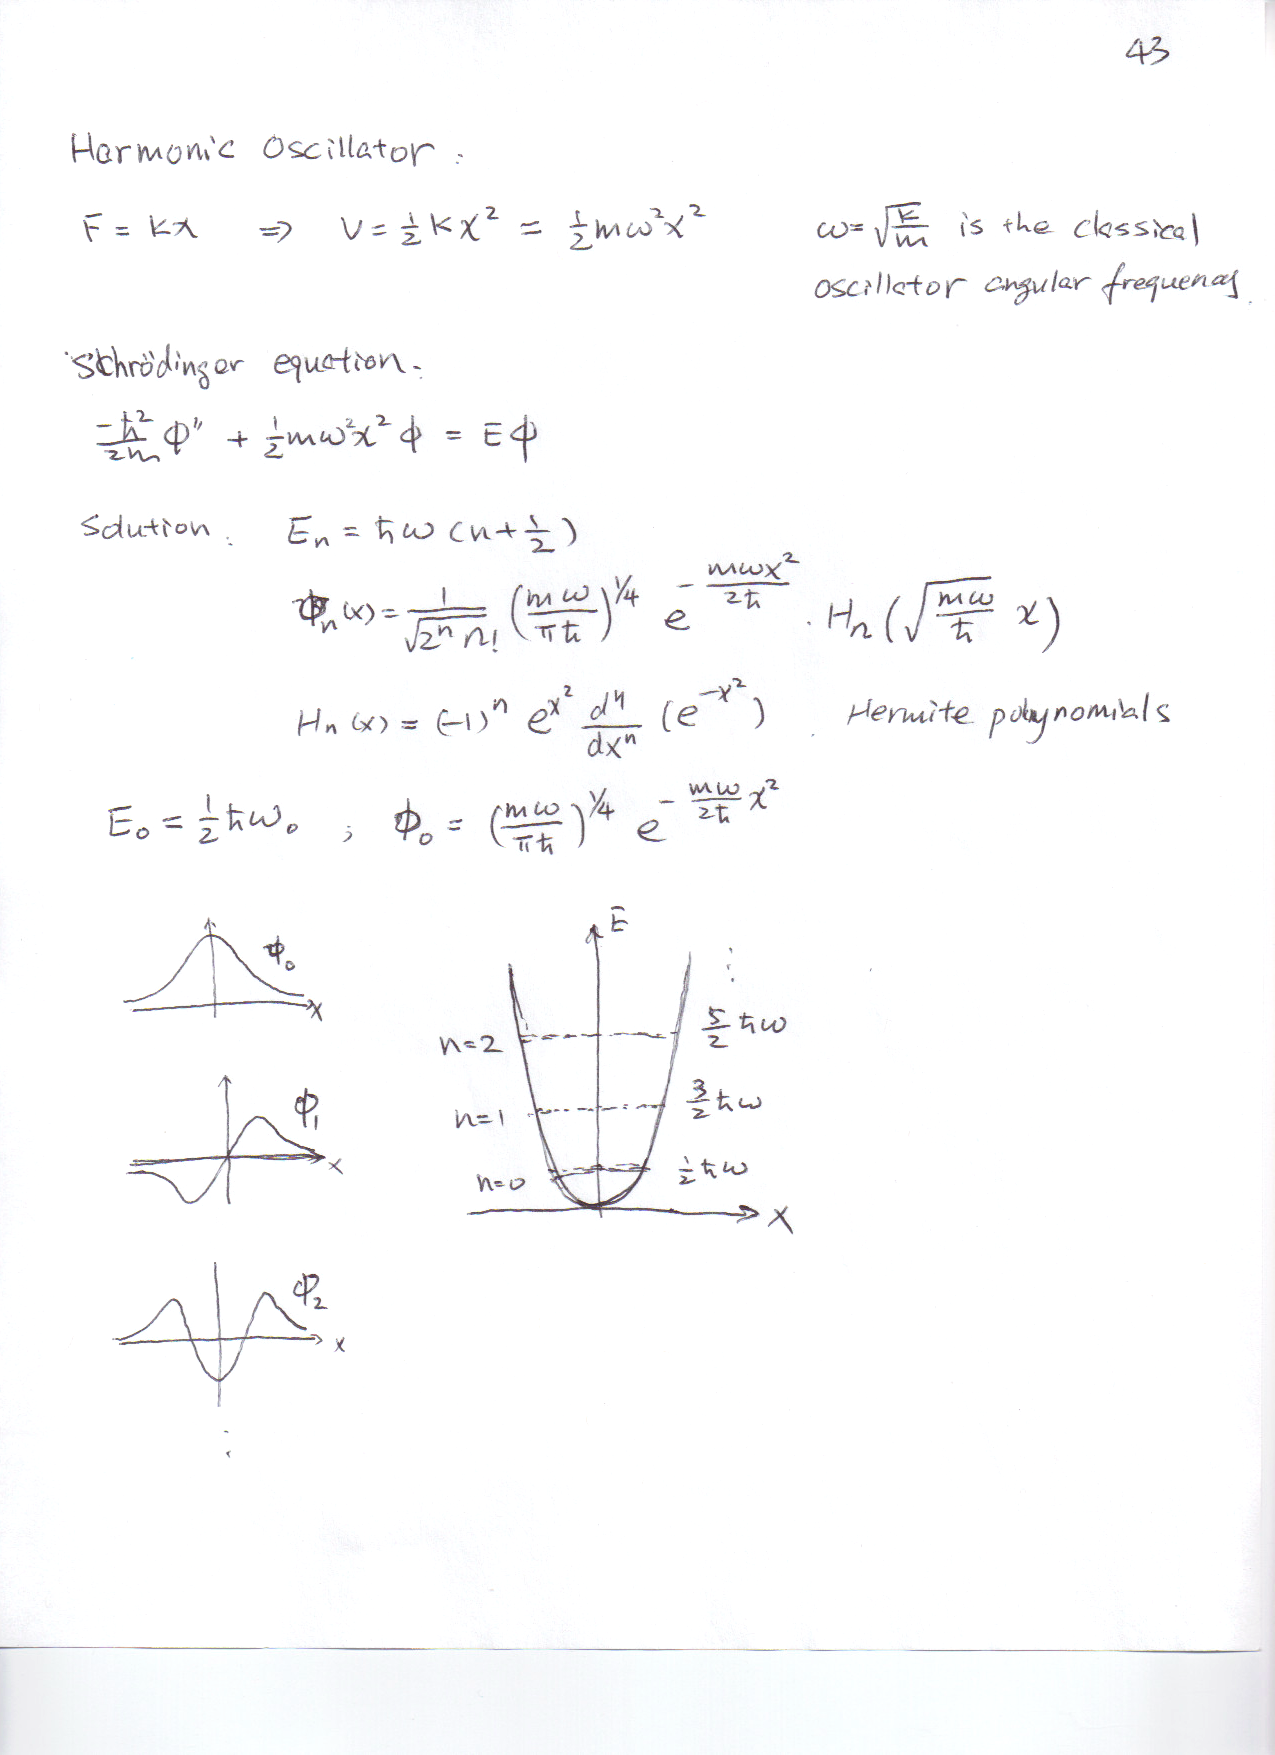 43
Harmonic Oscillator.
F = kx ⇒ V = ½ k x² = ½ mω²x² ω = √(k/m) is the classical
oscillator angular frequency.
Schrödinger equation.
-ħ²/2m ϕ'' + ½ mω²x² ϕ = E ϕ
Solution. Eₙ = ħω (n + ½)
ϕₙ(x) = 1/√(2ⁿ n!) (mω/πħ)^¼ e^(-mωx²/2ħ) · Hₙ(√(mω/ħ) x)
Hₙ(x) = (-1)ⁿ e^(x²) dⁿ/dxⁿ (e^(-x²)) . Hermite polynomials
E₀ = ½ ħω₀ ; ϕ₀ = (mω/πħ)^¼ e^(-mω/2ħ x²)
ϕ₀
x
ϕ₁
x
ϕ₂
x
⋮
E
⋮
n=2 5/2 ħω
n=1 3/2 ħω
n=0 ½ ħω
x